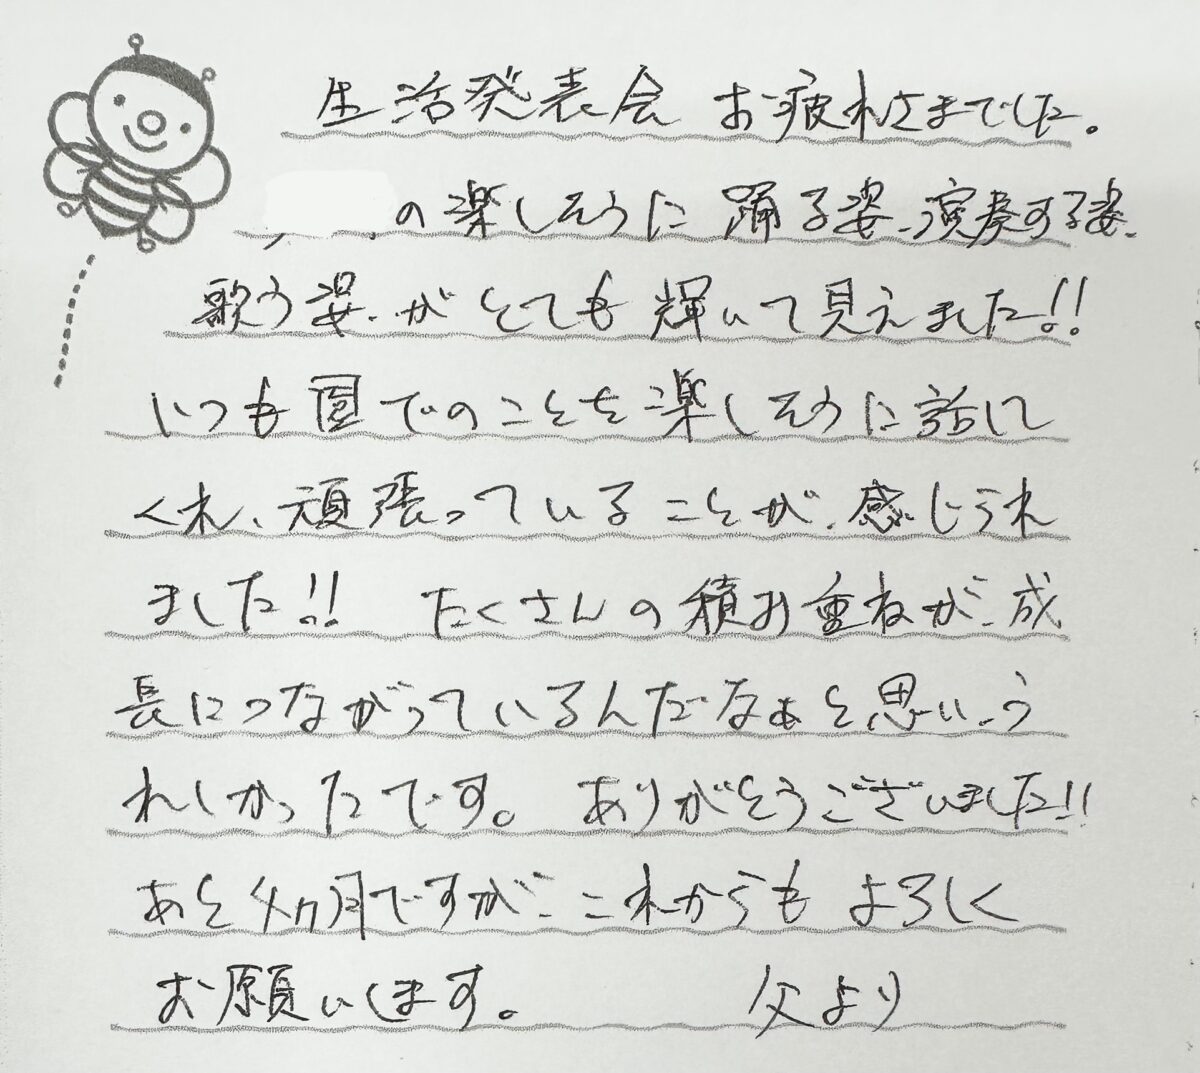 生活発表会 お疲れさまでした。
の楽しそうに 踊る姿、演奏する姿、
歌う姿、がとても輝いて見えました!!
いつも園でのことを楽しそうに話して
くれ、頑張っていることが、感じられ
ました!! たくさんの積み重ねが、成
長につながっているんだなぁと思い、う
れしかったです。 ありがとうございました!!
あと4ヶ月ですが、これからも よろしく
お願いします。 父より